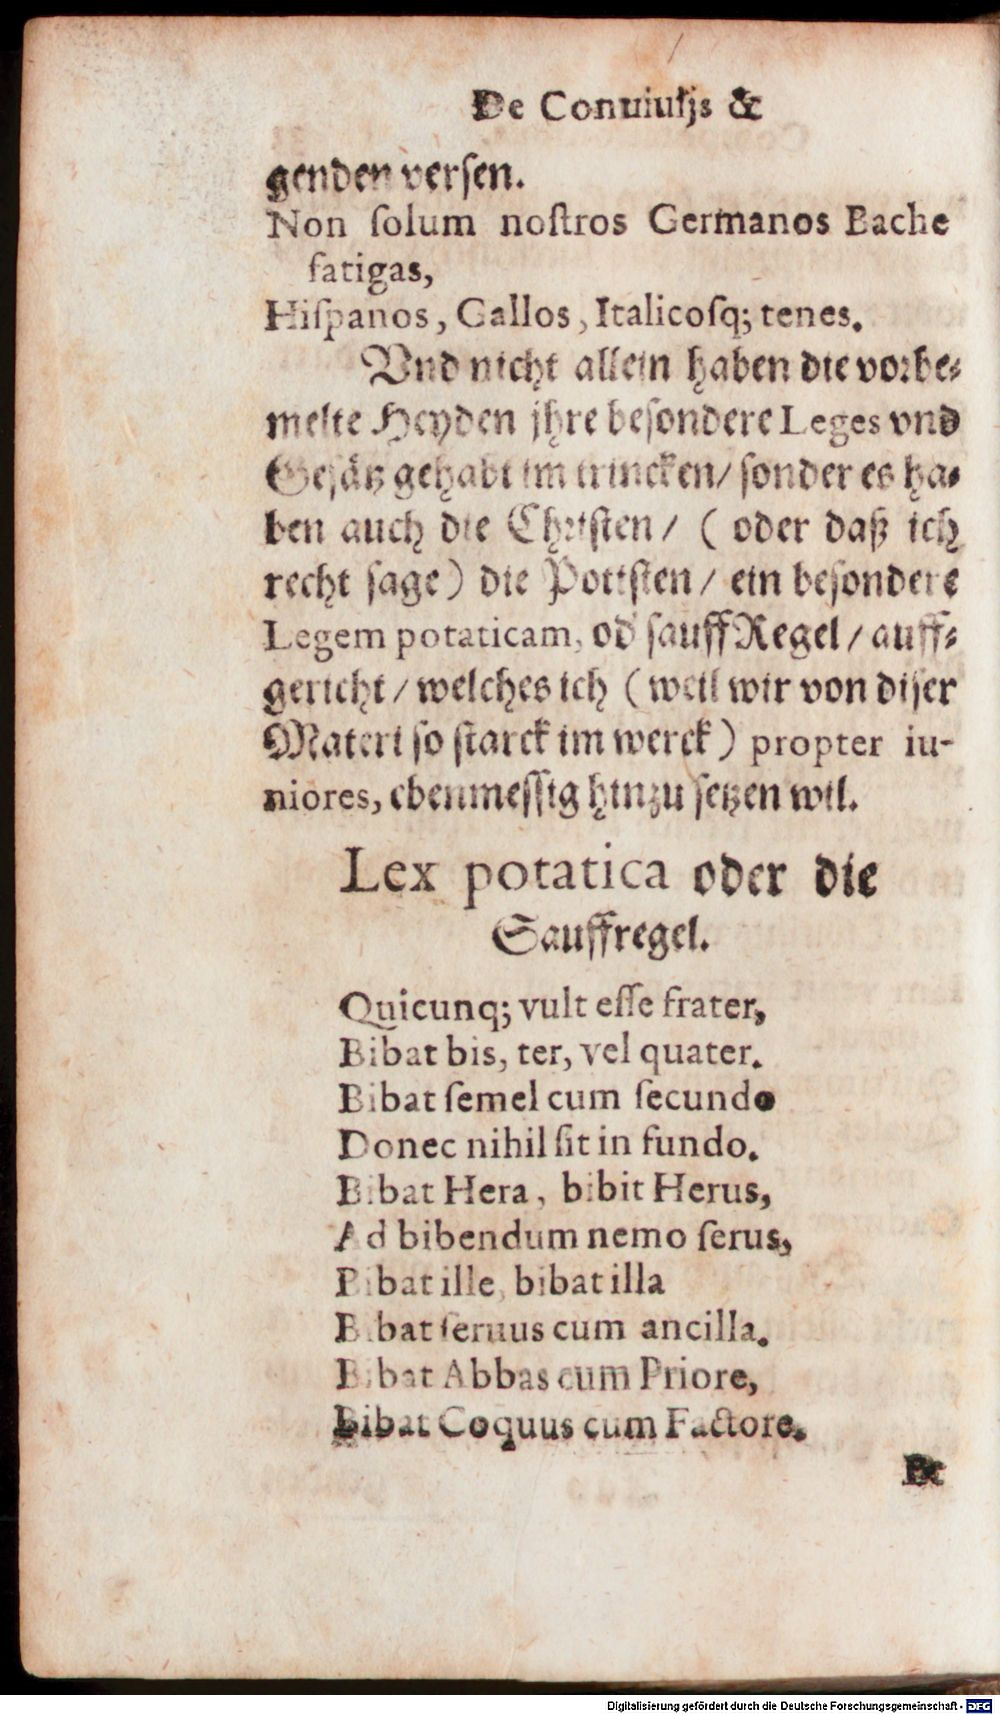 De Conuiuijs &
genden versen.
Non ſolum noſtros Germanos Bache
fatigas,
Hiſpanos, Gallos, Italicoſq; tenes.
Vnd nicht allein haben die vorbe⸗
melte Heyden jhre beſondere Leges vnd
Geſätz gehabt im trincken/ ſonder es ha⸗
ben auch die Chriſten / ( oder daß ich
recht ſage) die Pottſten / ein beſondere
Legem potaticam, od ſauff Regel / auff⸗
gericht / welches ich (weil wir von diſer
Materi ſo ſtarck im werck) propter iu-
niores, ebenmeſſig hinzu ſetzen wil.
Lex potatica oder die
Sauffregel.
Quicunq; vult eſſe frater,
Bibat bis, ter, vel quater.
Bibat ſemel cum ſecundo
Donec nihil ſit in fundo.
Bibat Hera, bibit Herus,
Ad bibendum nemo ſerus,
Bibat ille, bibat illa
Bibat ſeruus cum ancilla.
Bibat Abbas cum Priore,
Bibat Coquus cum Factore.
Et
Digitalisierung gefördert durch die Deutsche Forschungsgemeinschaft - DFG